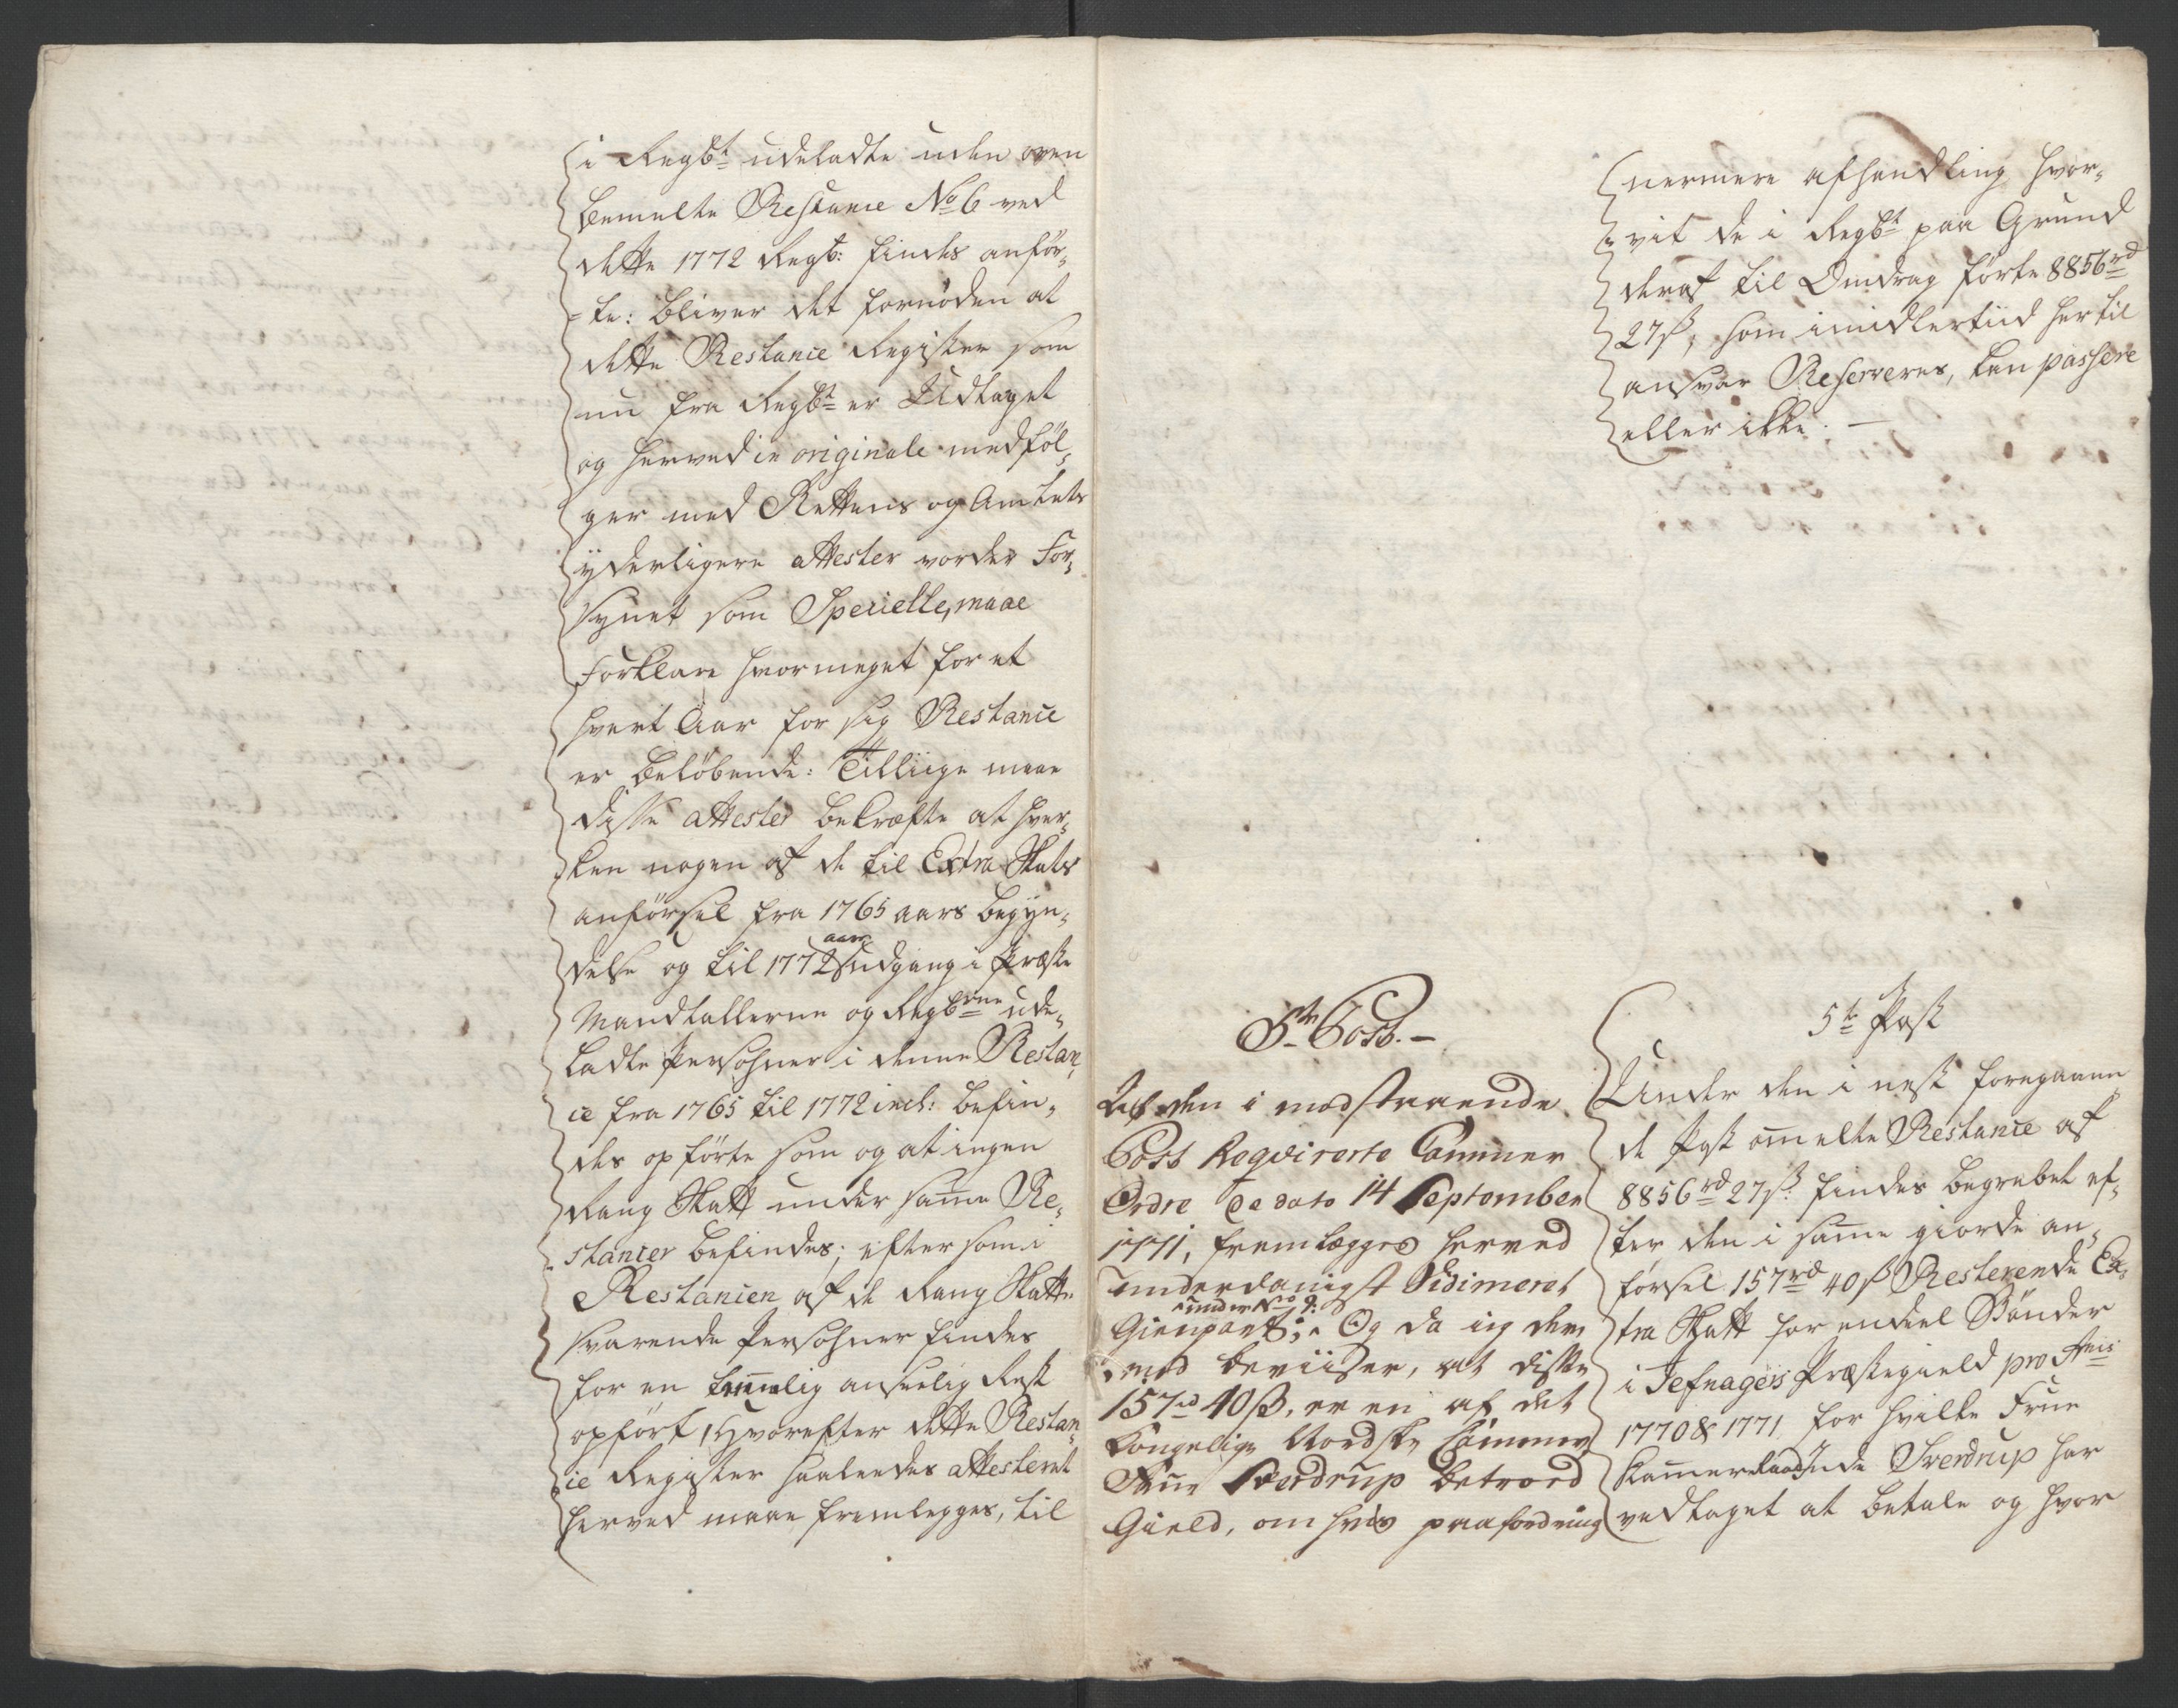 i Regb.t udeladte uden oven
bemelte Restance No 6 ved
dette 1772 Regb: findes anfør-
te: bliver det fornøden at
dette Restance Register som
nu fra Regb.t er Udtaget
og herved in originale medføl-
ger med Rettens og Amtets
yderligere attester vorder For-
synet som Specielle, maae
Forklare hvormeget for et
hvert Aar for sig Restance
er beløbende: Tilliige maae
disse attester bekræfte at hver-
ken nogen af de til Extra Skats
anførsel fra 1765 aars begyn-
delse og til 1772 aars udgang i Præste
Mandtallerne og Regb.rne ude-
ladte Persohner i denne Restan-
ce fra 1765 til 1772 incl: befin-
des opførte som og at ingen
Rang Skatt under samme Re-
stancer befindes; eftersom i
Restancen af de Rang Skatt
svarende Persohner findes
for en temmelig anseelig Rest
opført, Hvorefter dette Restan-
ce Register saaledes attesteret
herved maae fremlegges, til
nermere afhandling hvor-
vit de i Regb.t paa Grund
deraf til Omdrag førte 8856 rd
27 s, som imidlertiid hertil
ansvar Reserveres, kan passere
eller ikke. —
5te Post. —
Af den i modstaaende
Post Reqvirerte Cammer
Ordre de dato 14 September
1771, fremlægges herved
underdanigst Vidimeret
Gienpart, under No 9: Og da ieg der-
med beviiser, at disse
157 rd 40 ß. er en af det
Kongelige Nordske Cammer
Frue Sverdrup betroed
Gield, om hvis paafordring
5te Post
Under den i nest foregaaen-
de Post ommelte Restance af
8856 rd 27 ß. findes begrebet ef-
ter den i samme giorde an-
førsel 157 rd 40 ß Resterende Ex-
tra Skatt for endeel Bønder
i Jefnagers Præstegield pro Anis
1770 & 1771 for hvilke Frue
Kammerraadinde Sverdrup har
vedtaget at betale og hvor